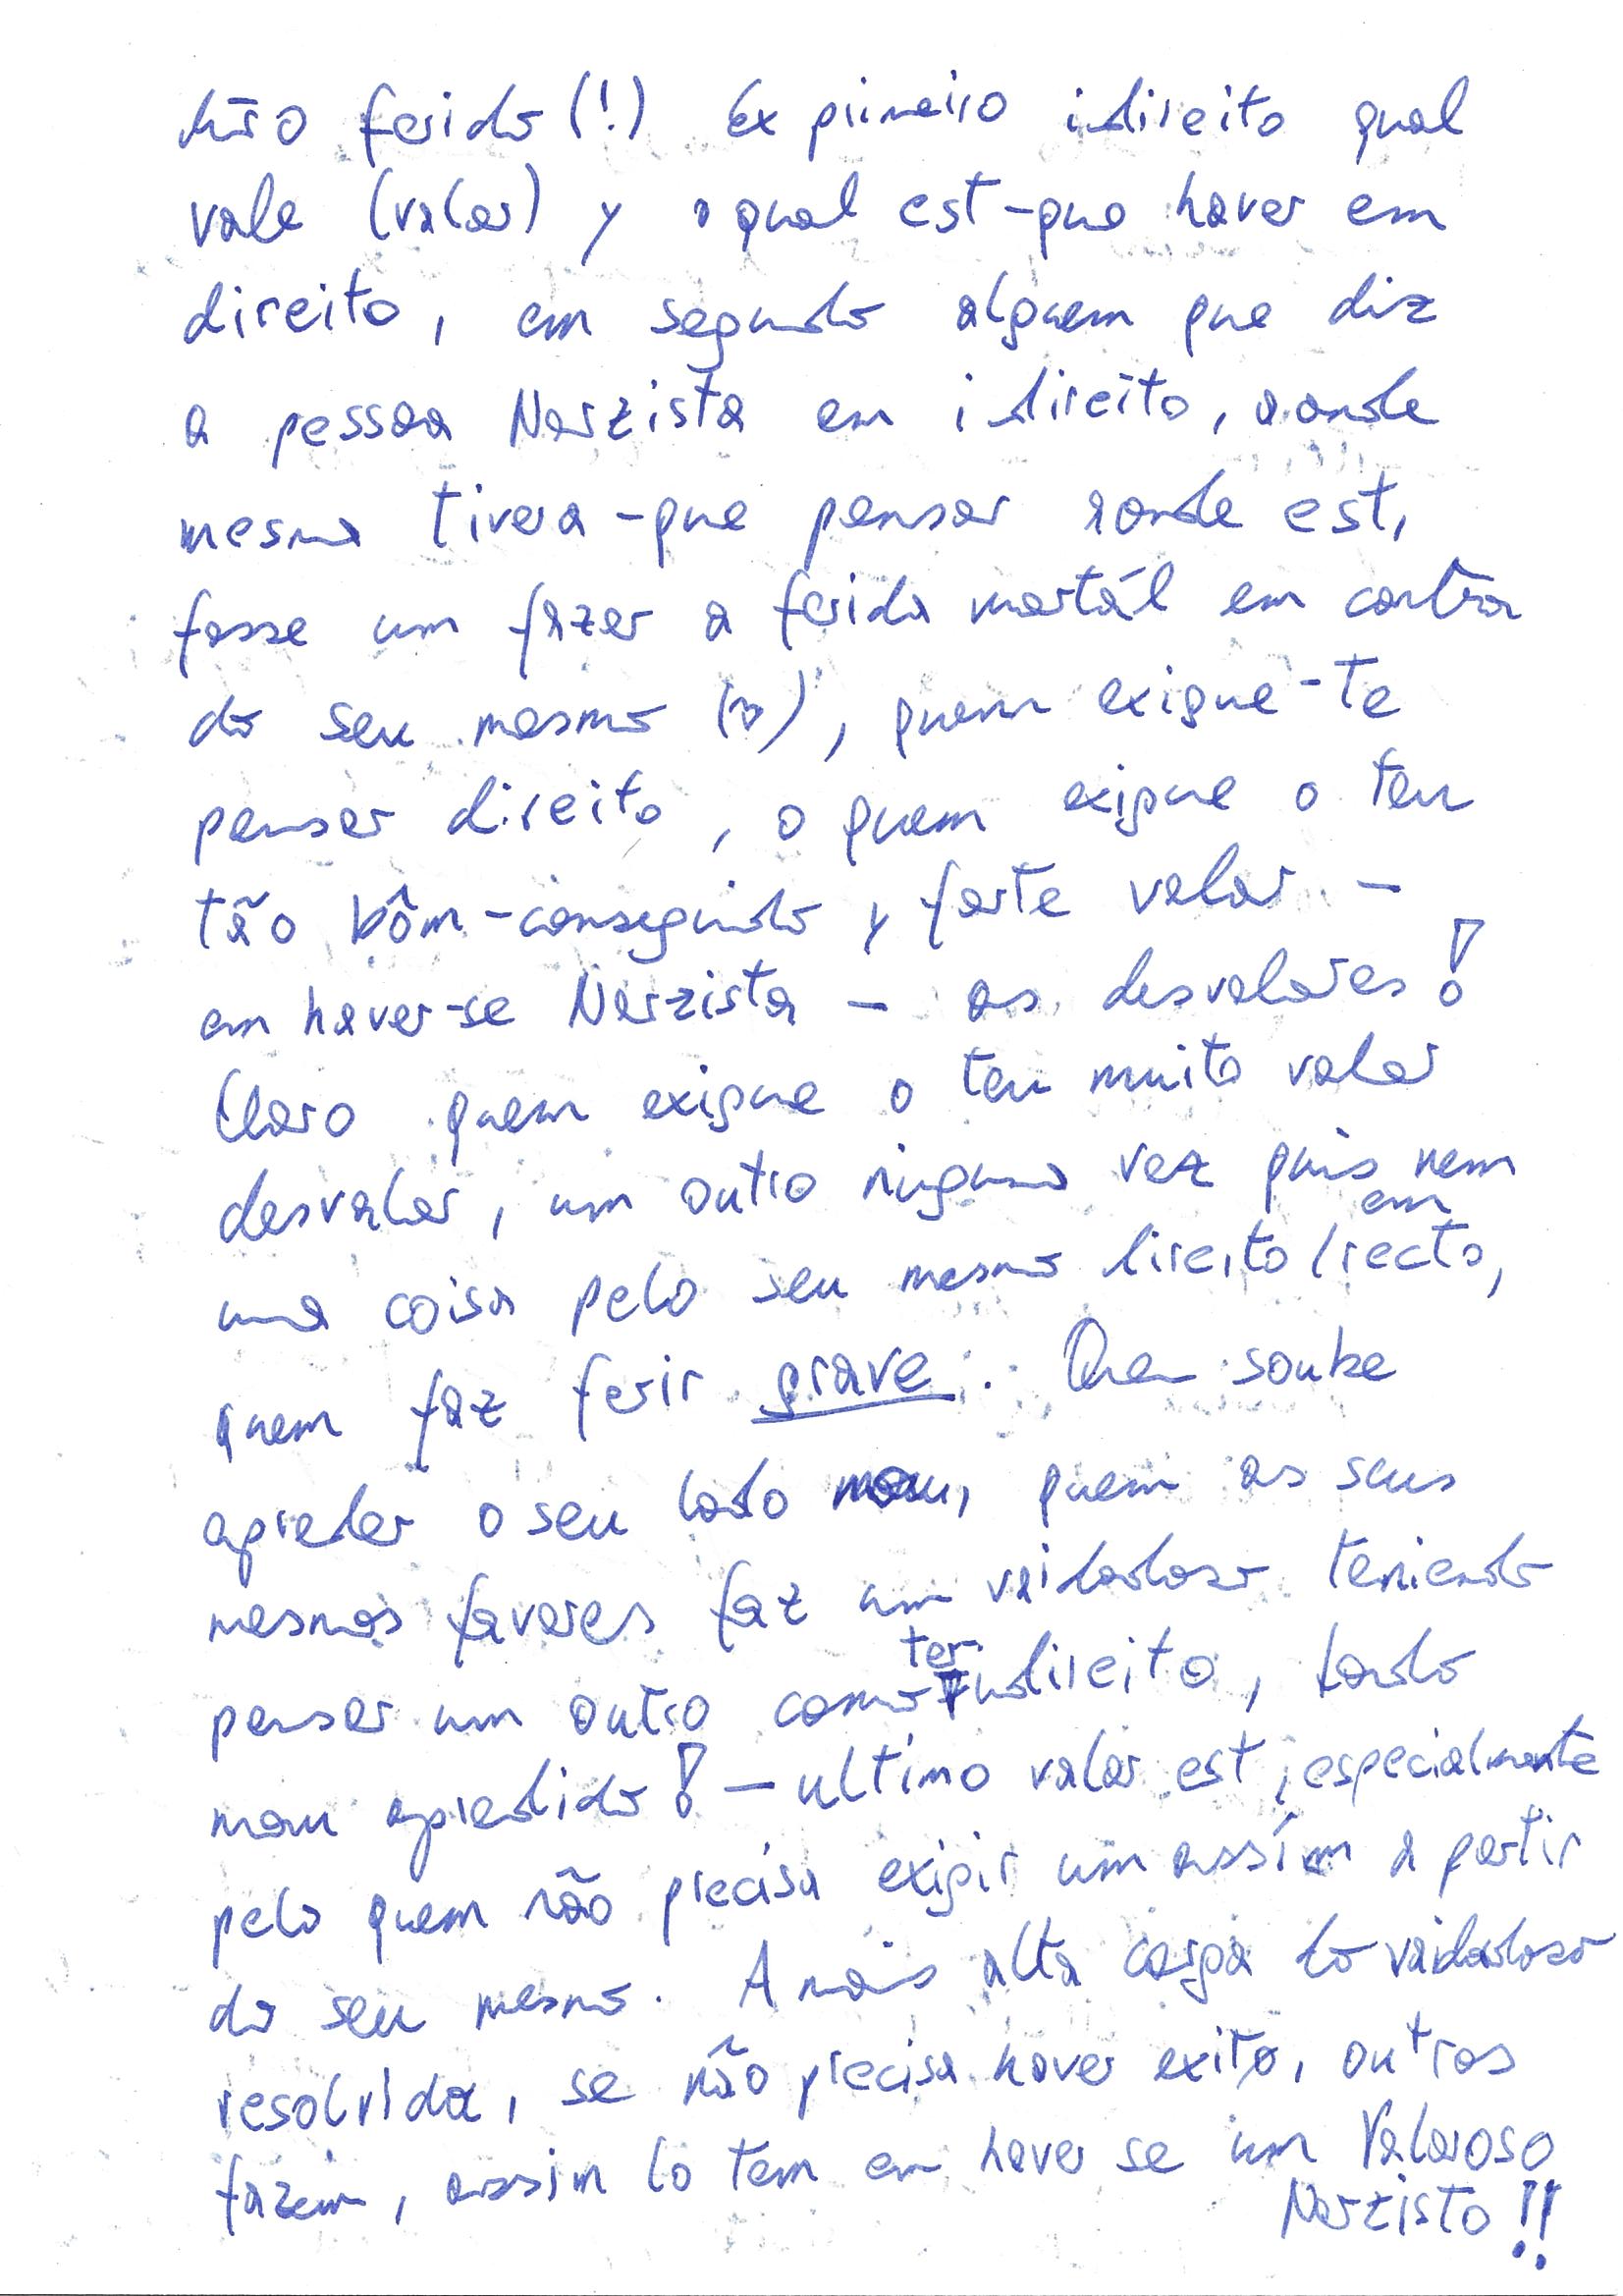 tão ferido (!) Ex primeiro indireito qual
vale (valor) y o qual est-que haver em
direito, em segundo alguem que diz
a pessoa Narzista em indireito, aonde
mesmo tivera-que pensar aonde est,
fosse um fazer a ferida mortál em contra
do seu mesmo, quem exigue-te
pensar direito, o quem exigue o teu
tão bôm-conseguido y forte valor. -
em haver-se Narzista - os desvalores!
Claro quem exigue o teu muito valor
desvalor, um outro ninguma vez quis nem
em
uma coisa pelo seu mesmo direito/recto,
quem faz ferir grave. Quem soube
aprender o seu lado mau, quem os seus
mesmos favores faz um vaidadoso teniendo
pensar um outro como ter indireito, tondo
mau aprendido! - ultimo valor est, especialmente
pelo quem não precisa exigir um assím a partir
do seu mesmo. A mais alta carga do vaidadoso
resolvida, se não precisa haver exito, outros
fazem, assim lo tem em haver se um Valoroso
Narzisto!!